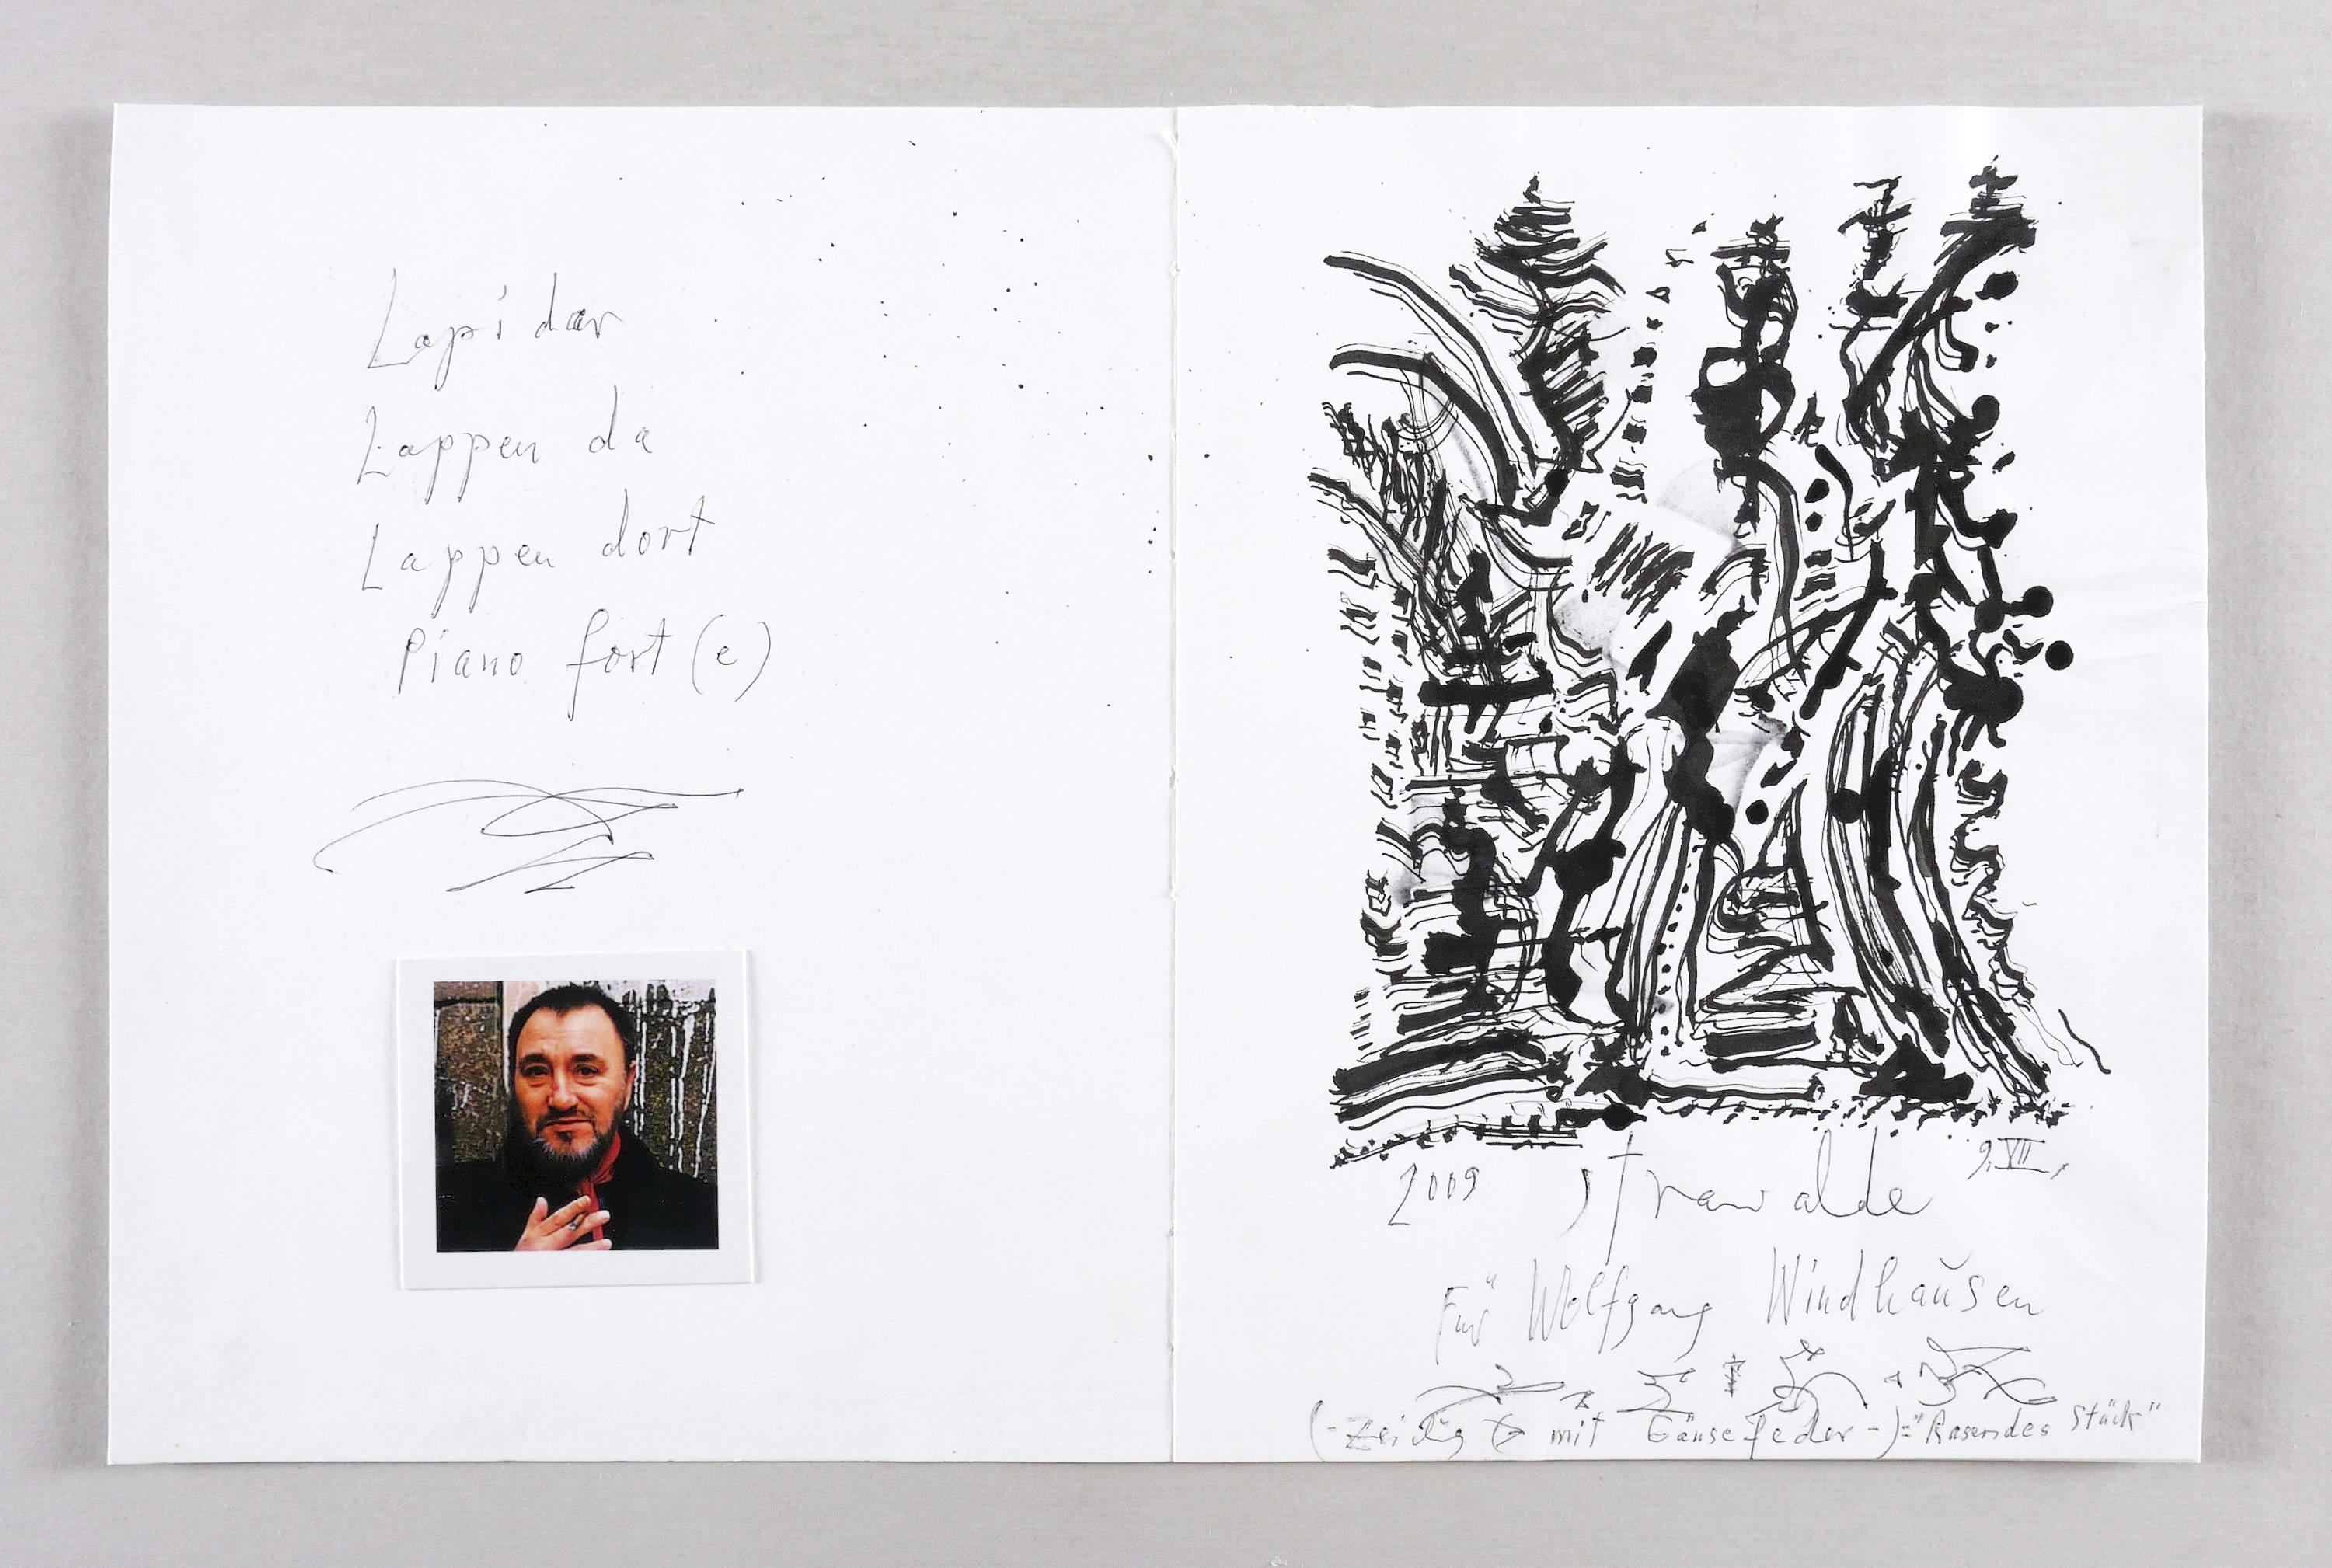 Lapidar
Lappen da
Lappen dort
Piano fort(e)
2009 strawalde 9.VII.
Für Wolfgang Windhausen
mit Gänsefeder-)="Rasendes Stück"